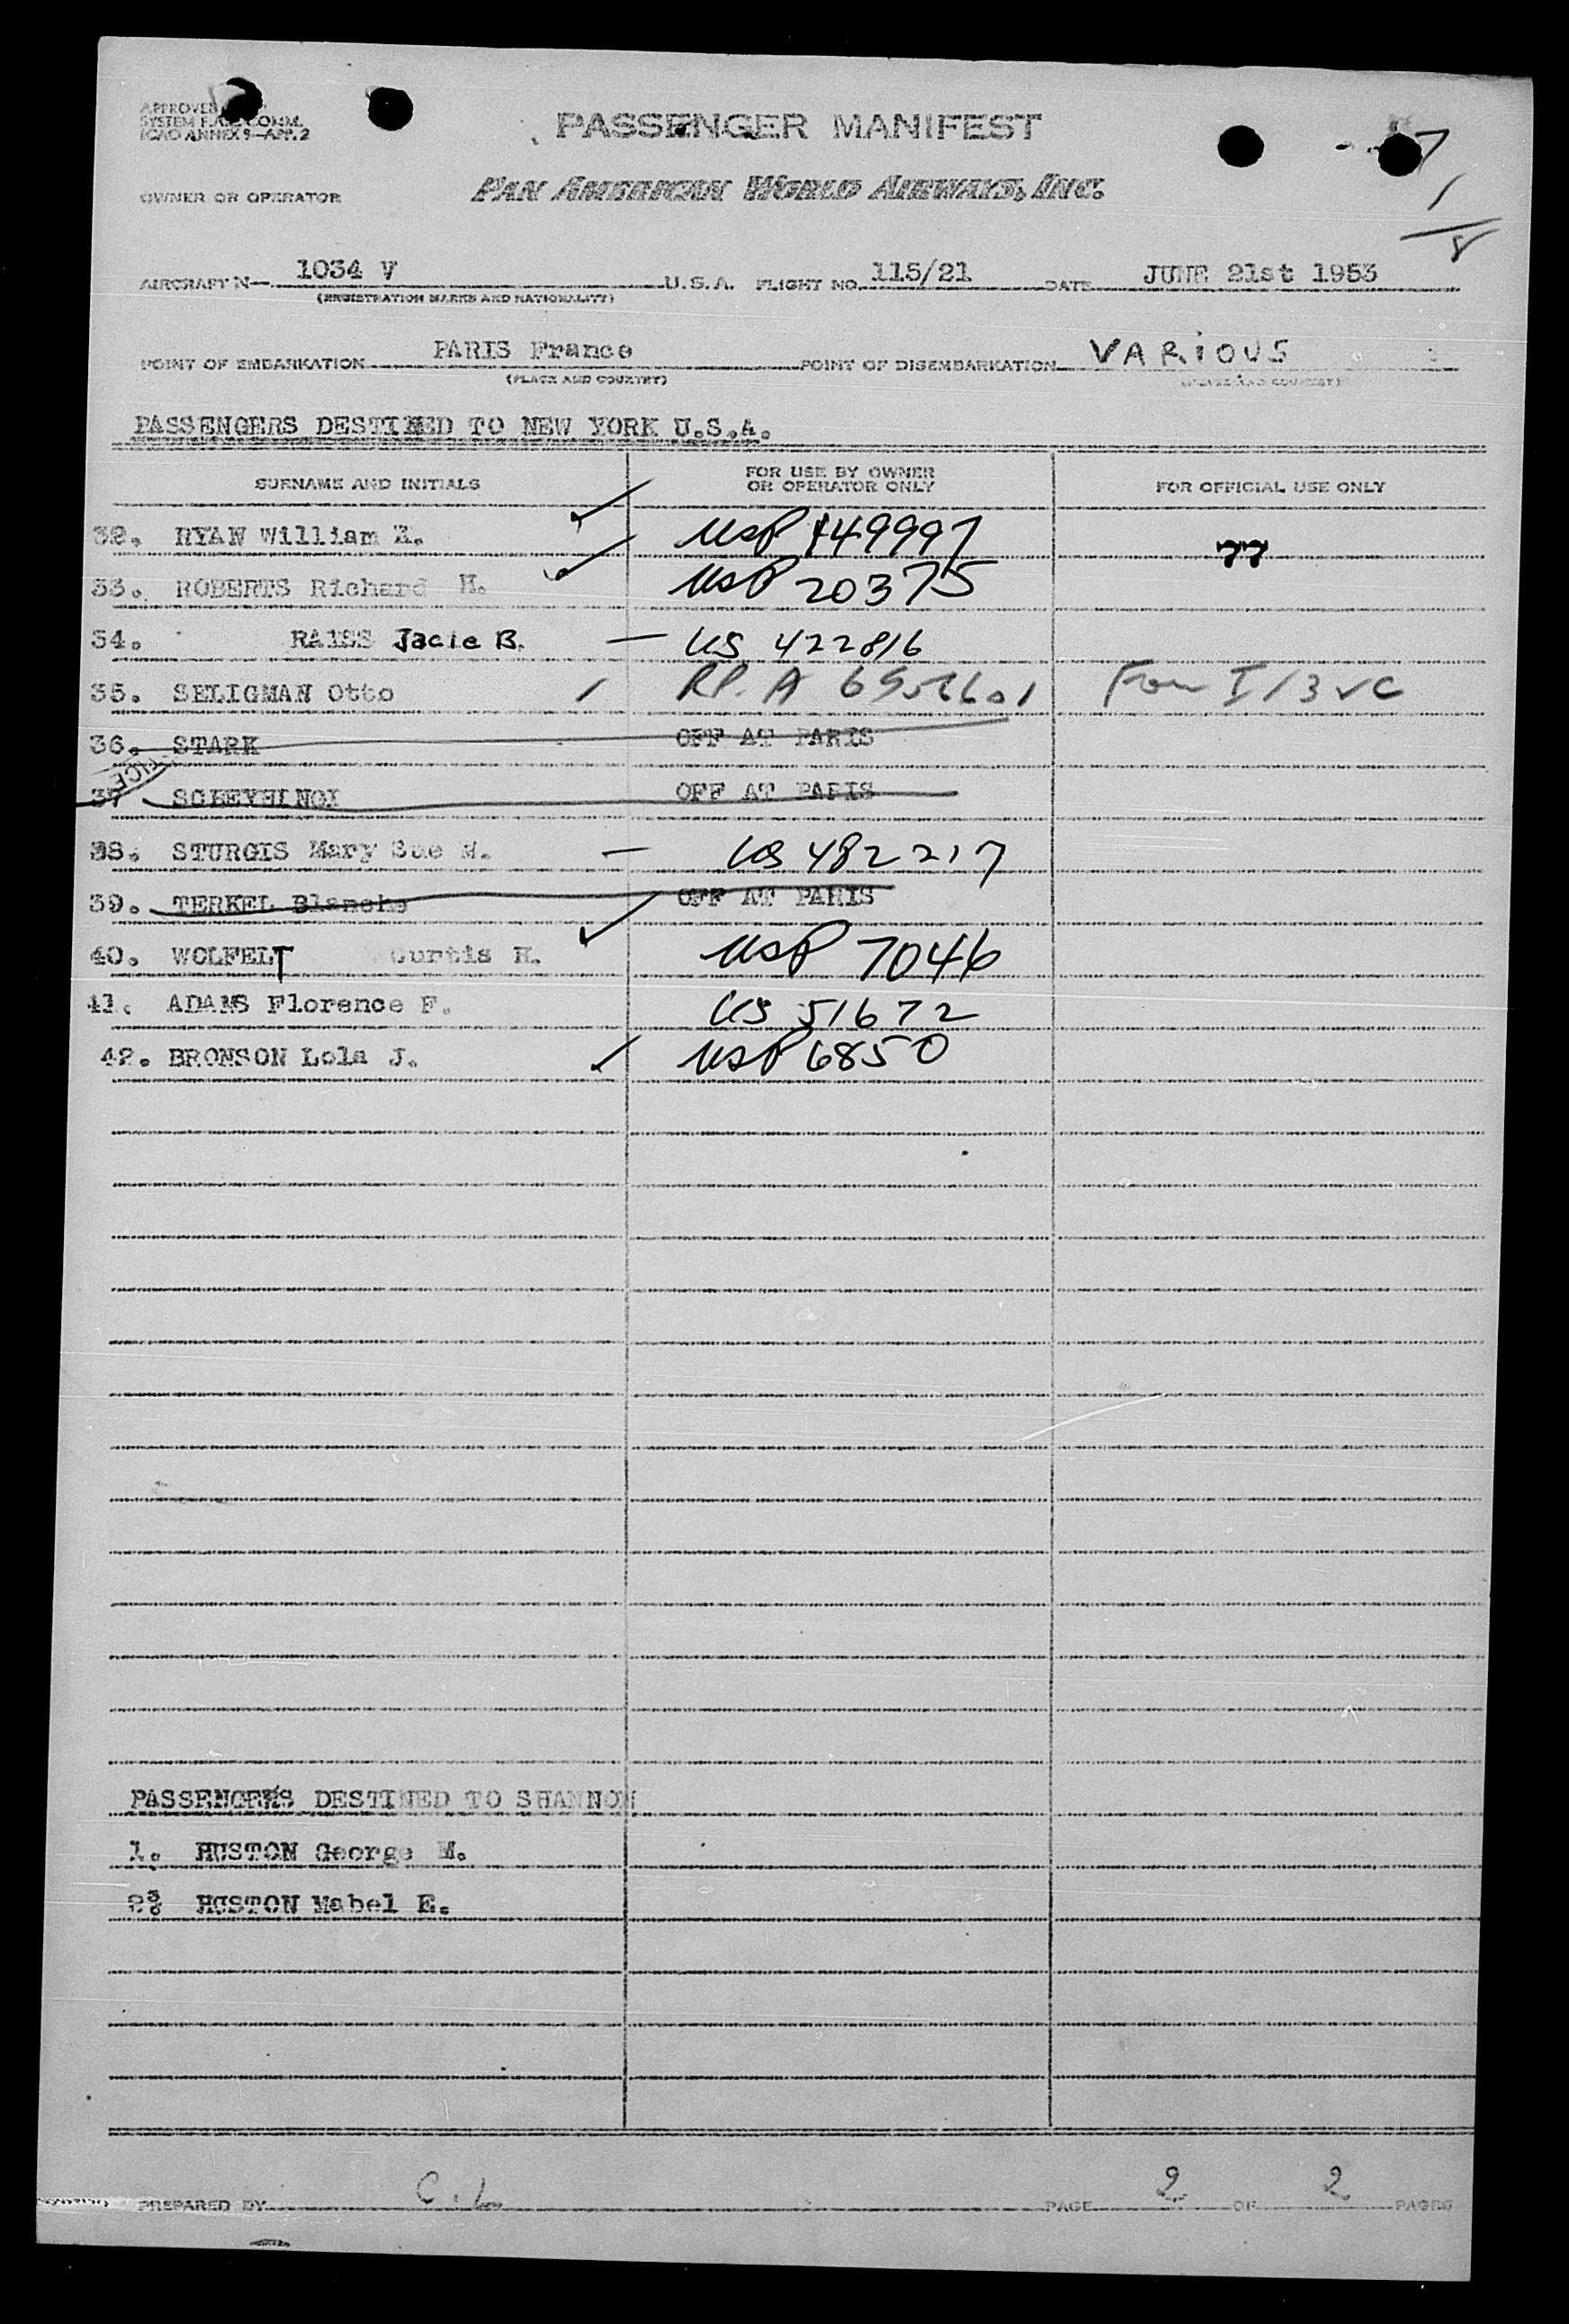 APPROVED
SYSTEM F.A.L. COMM.
ICAO ANNEX 9—APP. 2
PASSENGER MANIFEST
7
OWNER OR OPERATOR PAN AMERICAN WORLD AIRWAYS, INC.
1
8
AIRCRAFT N— 1034 V U.S.A. FLIGHT NO. 115/21 DATE JUNE 21st 1953
(REGISTRATION MARKS AND NATIONALITY)
POINT OF EMBARKATION PARIS France POINT OF DISEMBARKATION VARIOUS
(PLACE AND COUNTRY) (PLACE AND COUNTRY)
PASSENGERS DESTINED TO NEW YORK U.S.A.
SURNAME AND INITIALS FOR USE BY OWNER OR OPERATOR ONLY FOR OFFICIAL USE ONLY
32. RYAN William USP 149997 77
33. ROBERTS Richard H. USP 20375
34. RAISS Jacie B. — US 422816
35. SELIGMAN Otto / RP. A 6956601
36. STARK OFF AT PARIS
37 OFF AT PARIS
38. STURGIS Mary Sue W. — US 482217
39. TERKEL Blanche OFF AT PARIS
40. WOLFELT Curtis H. USP 7046
41. ADAMS Florence F. US 51672
42. BRONSON Lola J. USP 6850
PASSENGERS DESTINED TO SHANNON
1. HUSTON George M.
2. HUSTON Mabel E.
PREPARED BY C.L. PAGE 2 OF 2 PAGES